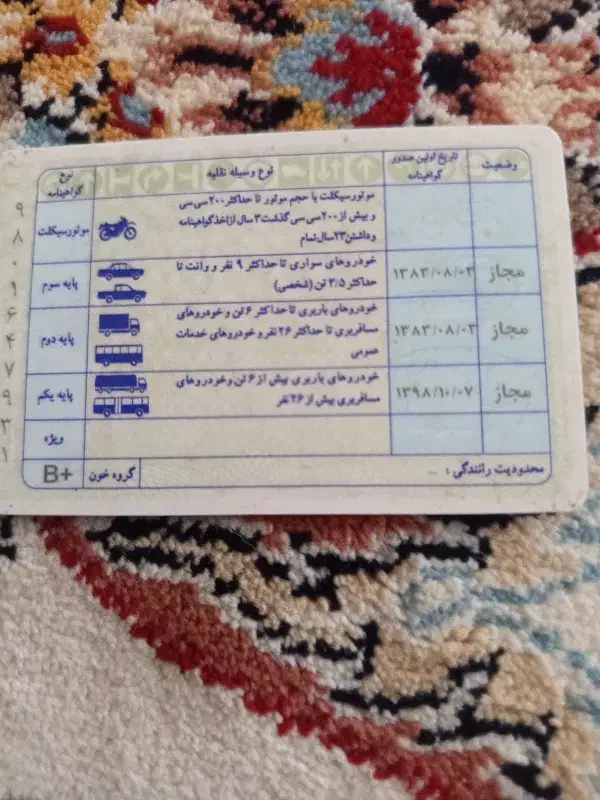 نوع گواهینامه
نوع وسیله نقلیه
تاریخ اولین صدور گواهینامه
وضعیت
موتورسیکلت
موتورسیکلت با حجم موتور تا حداکثر ۲۰۰ سی سی
و بیش از ۲۰۰ سی سی گذشت ۳ سال از اخذ گواهینامه
و داشتن ۲۳ سال تمام
پایه سوم
خودروهای سواری تا حداکثر ۹ نفر و وانت تا
حداکثر ۳/۵ تن (شخصی)
۱۳۸۳/۰۸/۰۳
مجاز
پایه دوم
خودروهای باربری تا حداکثر ۶ تن و خودروهای
مسافربری تا حداکثر ۲۶ نفر و خودروهای خدمات
عمومی
۱۳۸۳/۰۸/۰۳
مجاز
پایه یکم
خودروهای باربری بیش از ۶ تن و خودروهای
مسافربری بیش از ۲۶ نفر
۱۳۹۸/۱۰/۰۷
مجاز
ویژه
گروه خون
B+
محدودیت رانندگی : -
۹
۸
۰
۱
۶
۴
۷
۹
۳
۱